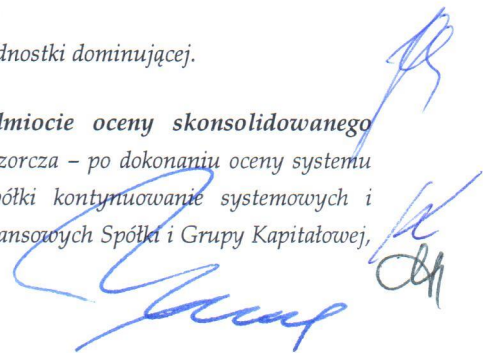 dnostki dominującej.
dmiocie oceny skonsolidowanego
zorcza – po dokonaniu oceny systemu
ółki kontynuowanie systemowych i
ansowych Spółki i Grupy Kapitałowej,